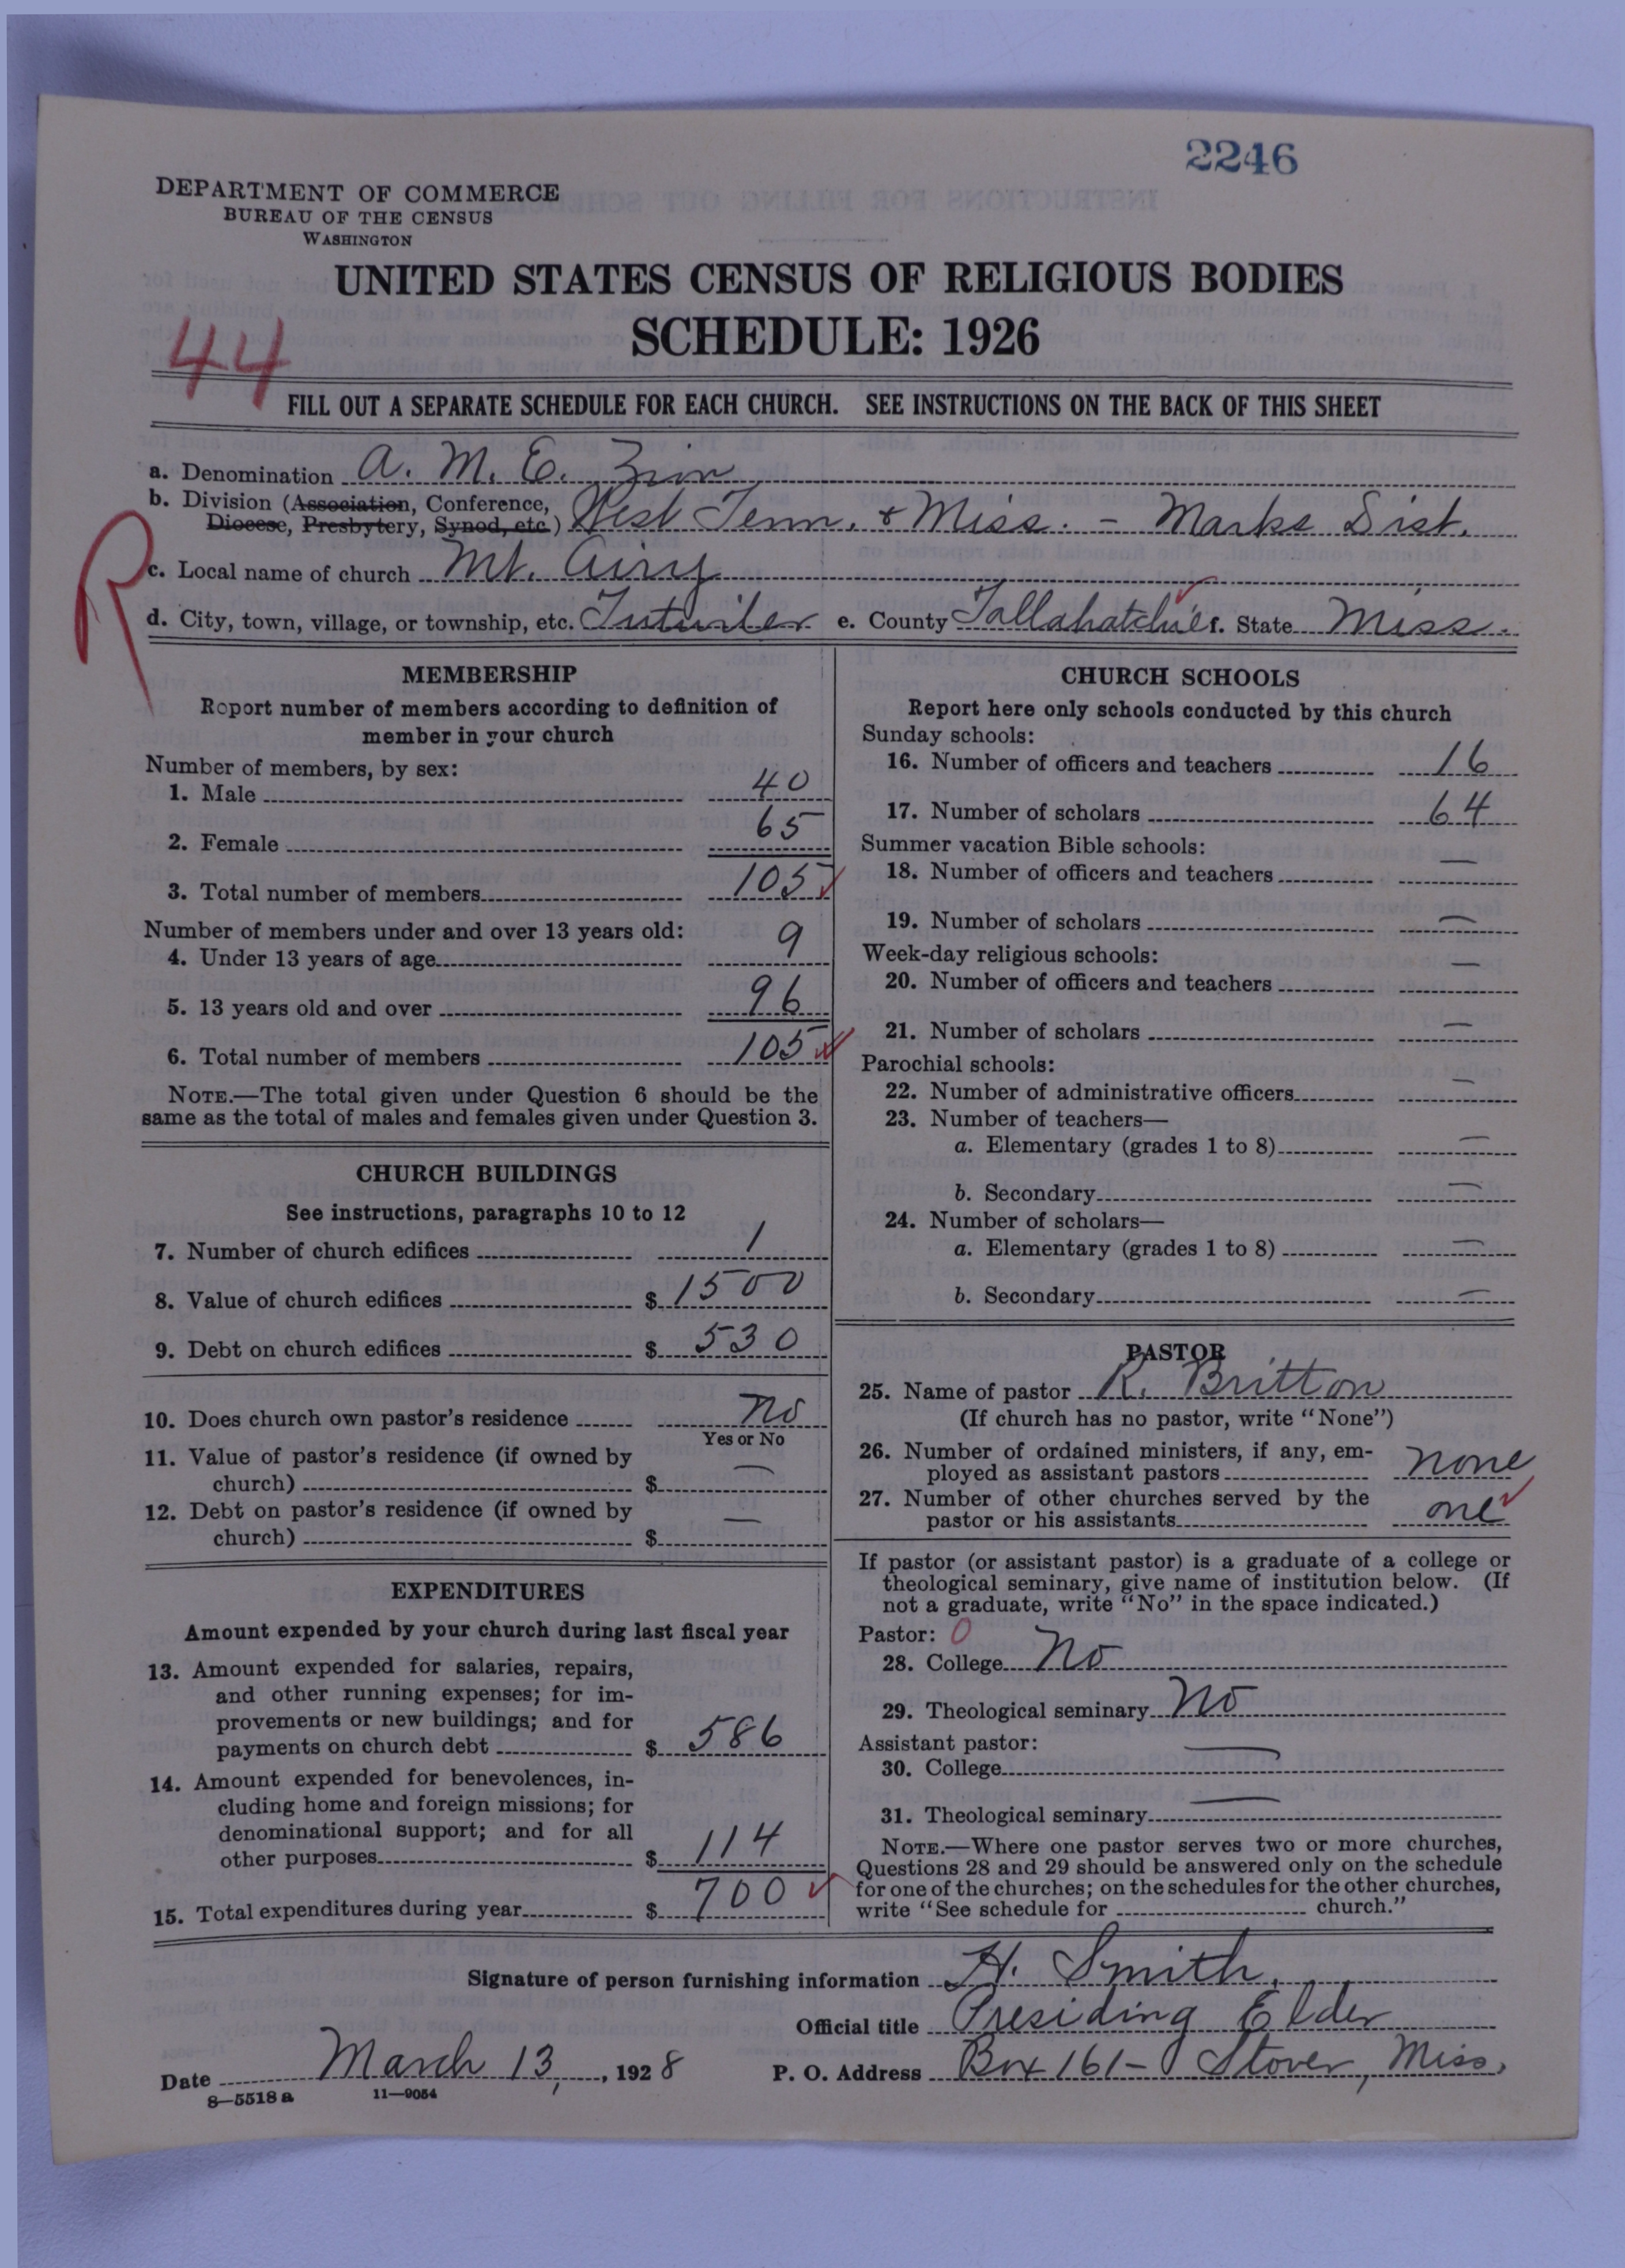 2246
DEPARTMENT OF COMMERCE
BUREAU OF THE CENSUS
WASHINGTON
UNITED STATES CENSUS OF RELIGIOUS BODIES
SCHEDULE: 1926
44
FILL OUT A SEPARATE SCHEDULE FOR EACH CHURCH. SEE INSTRUCTIONS ON THE BACK OF THIS SHEET
a. Denomination A. M. E. Zion
b. Division (Association, Conference,
Diocese, Presbytery, Synod, etc.) West Tenn. & Miss. - Marks Dist.
R
c. Local name of church Mt. Airy
d. City, town, village, or township, etc. Tutwiler e. County Tallahatchie f. State Miss.
MEMBERSHIP
Report number of members according to definition of
member in your church
Number of members, by sex:
1. Male 40
2. Female 65
3. Total number of members 105
Number of members under and over 13 years old:
4. Under 13 years of age 9
5. 13 years old and over 96
6. Total number of members 105
NOTE.—The total given under Question 6 should be the
same as the total of males and females given under Question 3.
CHURCH BUILDINGS
See instructions, paragraphs 10 to 12
7. Number of church edifices 1
8. Value of church edifices $ 1500
9. Debt on church edifices $ 530
10. Does church own pastor's residence No
Yes or No
11. Value of pastor's residence (if owned by
church) $ —
12. Debt on pastor's residence (if owned by
church) $ —
EXPENDITURES
Amount expended by your church during last fiscal year
13. Amount expended for salaries, repairs,
and other running expenses; for im-
provements or new buildings; and for
payments on church debt $ 586
14. Amount expended for benevolences, in-
cluding home and foreign missions; for
denominational support; and for all
other purposes $ 114
15. Total expenditures during year $ 700
CHURCH SCHOOLS
Report here only schools conducted by this church
Sunday schools:
16. Number of officers and teachers 16
17. Number of scholars 64
Summer vacation Bible schools:
18. Number of officers and teachers —
19. Number of scholars —
Week-day religious schools:
20. Number of officers and teachers —
21. Number of scholars —
Parochial schools:
22. Number of administrative officers —
23. Number of teachers—
a. Elementary (grades 1 to 8) —
b. Secondary —
24. Number of scholars—
a. Elementary (grades 1 to 8) —
b. Secondary —
PASTOR
25. Name of pastor R. Britton
(If church has no pastor, write "None")
26. Number of ordained ministers, if any, em-
ployed as assistant pastors none
27. Number of other churches served by the
pastor or his assistants one
If pastor (or assistant pastor) is a graduate of a college or
theological seminary, give name of institution below. (If
not a graduate, write "No" in the space indicated.)
Pastor: 0
28. College No
29. Theological seminary No
Assistant pastor:
30. College —
31. Theological seminary —
NOTE.—Where one pastor serves two or more churches,
Questions 28 and 29 should be answered only on the schedule
for one of the churches; on the schedules for the other churches,
write "See schedule for church."
Signature of person furnishing information H. Smith,
Official title Presiding Elder
Date March 13, , 1928 P. O. Address Box 161- Stover, Miss,
8—5518 a 11—9054